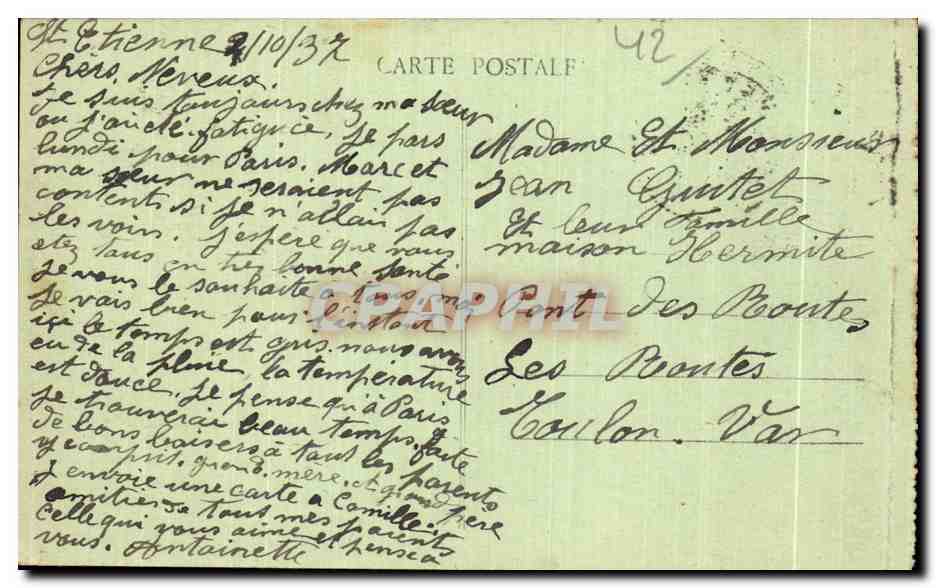 St Etienne 2/10/37
42
CARTE POSTALE
Chers Neveux.
Je suis toujours chez ma sœur
ou j'ai été fatiguée, je pars
lundi pour Paris. Marc et
ma sœur ne seraient pas
contents si je n'allais pas
les voir. J'espère que vous
etez tous en tres bonne santé
je vous le souhaite a tous, moi
je vais bien pour l'instant
ici le temps est gris. nous avons
eu de la pluie, la temperature
est douce. Je pense qu'à Paris
je trouverai beau temps. faite
de bons baisers a tout les parents
y compris grand mère. et grand père
J envoie une carte a Camille.
amitiés de tout mes parents
celle qui vous aime et pense a
vous. Antoinette
Madame Et Monsieur
Jean Guitet
Et leur Famille
maison Hermite
Pont des Routes
Les Routes
Toulon. Var
CPAPHIL